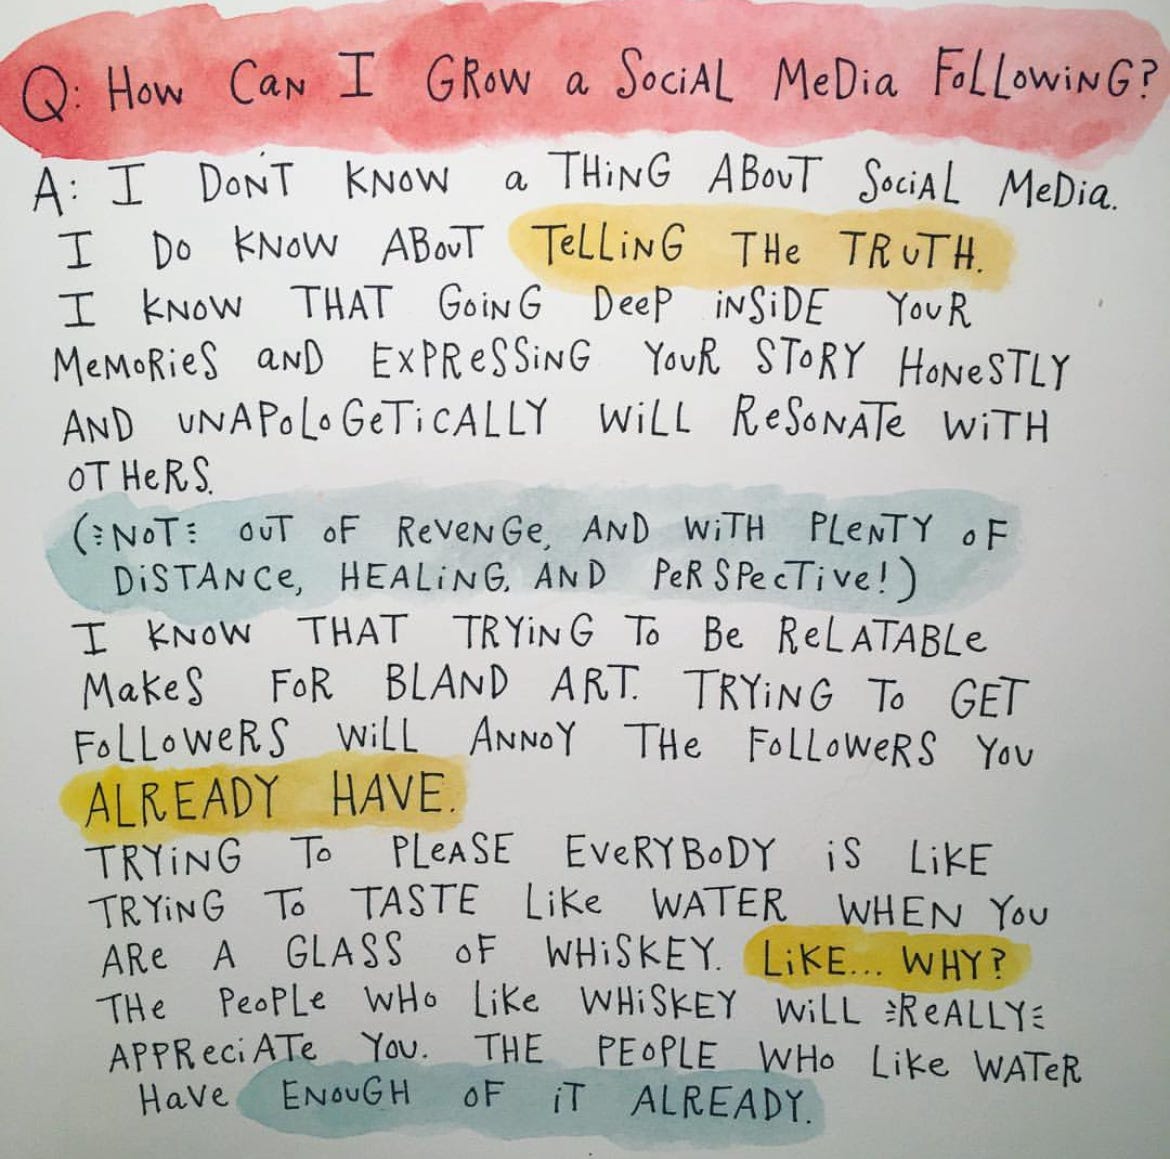 Q: HOW CAN I GROW a SOCiAL MeDia FOLLOWiNG?
A: I DON'T KNOW a THiNG ABOUT SociAL MeDia.
I DO KNOW ABOUT TeLLiNG THe TRUTH.
I KNOW THAT GoiNG DeeP iNSiDE YOUR
MeMoRieS aND EXPReSSiNG YOUR STORY HoNeSTLY
AND UNAPoLoGeTiCALLY WiLL ReSoNATe WiTH
OTHeRS.
(NOT OUT OF ReVeNGe, AND WiTH PLeNTY OF
DiSTANCe, HEALiNG, AND PeRSPecTive!)
I KNOW THAT TRYiNG To Be ReLATABLe
MakeS FOR BLAND ART. TRYiNG To GET
FoLLoWeRS WiLL ANNOY THe FoLLoWeRS YOU
ALREADY HAVE.
TRYiNG To PLeASE EVeRYBoDY iS LiKE
TRYiNG To TASTE Like WATER WHEN YOU
ARe A GLASS OF WHiSKEY. LiKE... WHY?
THe PeoPLe WHo Like WHiSKEY WiLL ReALLY
APPReciATe YOU. THE PEOPLE WHo Like WATeR
HaVe ENOUGH OF iT ALREADY.